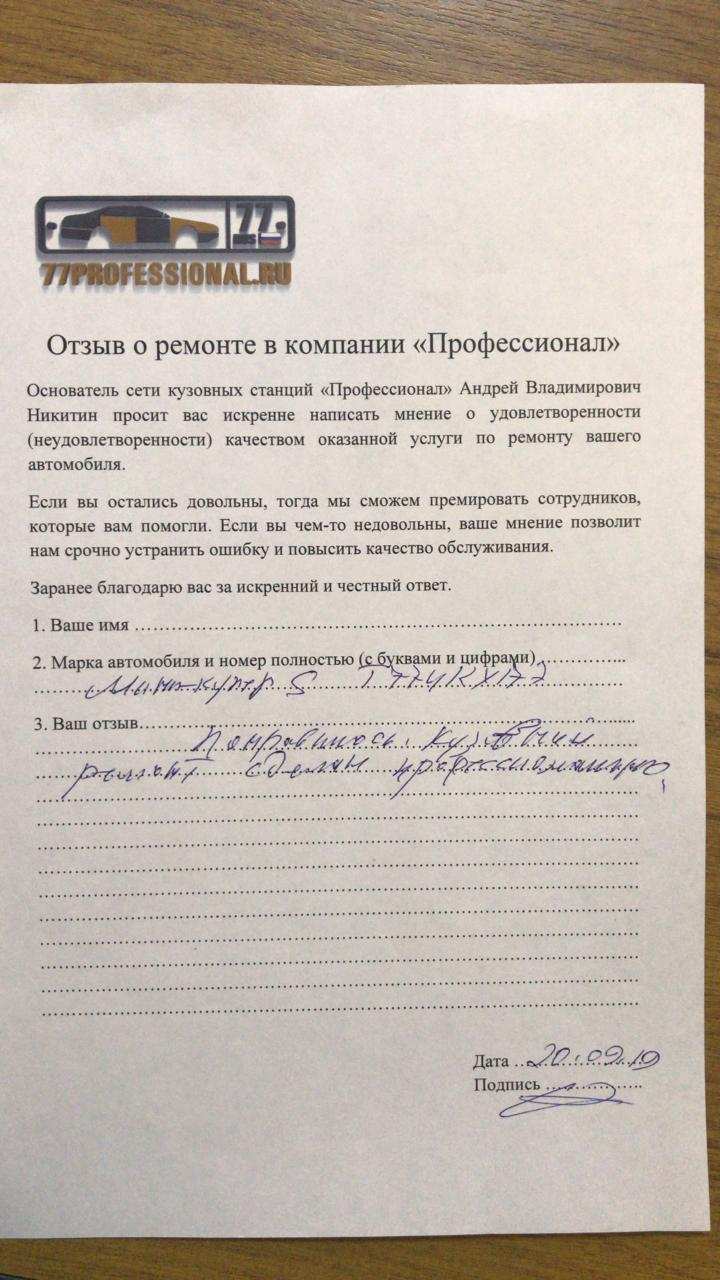 77
RUS
77PROFESSIONAL.RU
Отзыв о ремонте в компании «Профессионал»
Основатель сети кузовных станций «Профессионал» Андрей Владимирович
Никитин просит вас искренне написать мнение о удовлетворенности
(неудовлетворенности) качеством оказанной услуги по ремонту вашего
автомобиля.
Если вы остались довольны, тогда мы сможем премировать сотрудников,
которые вам помогли. Если вы чем-то недовольны, ваше мнение позволит
нам срочно устранить ошибку и повысить качество обслуживания.
Заранее благодарю вас за искренний и честный ответ.
1. Ваше имя
2. Марка автомобиля и номер полностью (с буквами и цифрами)
Мини-купер S
3. Ваш отзыв
Понравилось. Кузовный
ремонт сделан профессионально
Дата 20.09.19
Подпись